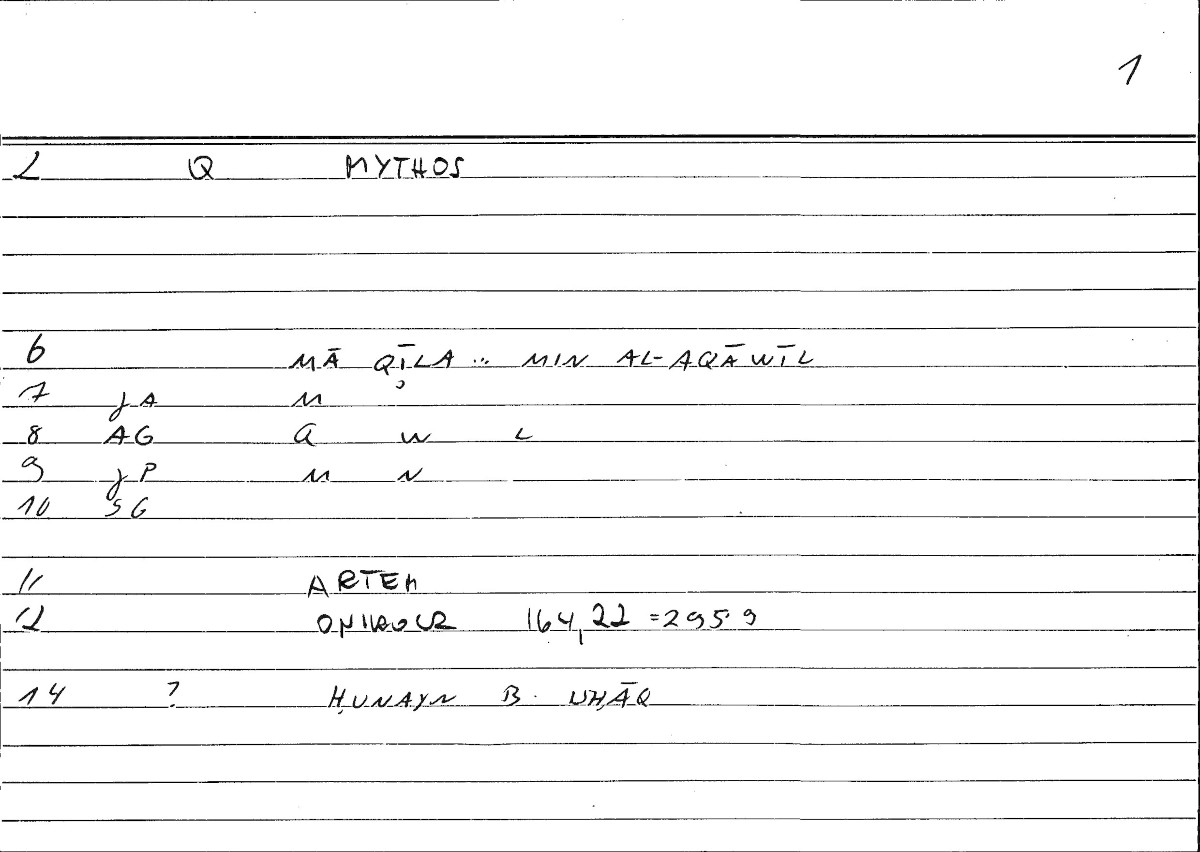 1
2 Q MYTHOS
6 MĀ QĪLA .. MIN AL-AQĀWĪL
7 jA M
8 AG Q W L
9 jP M N
10 SG
11 ARTEM
12 ONIROCR 164,22 = 295.9
14 ? ḤUNAYN B. ISḤĀQ